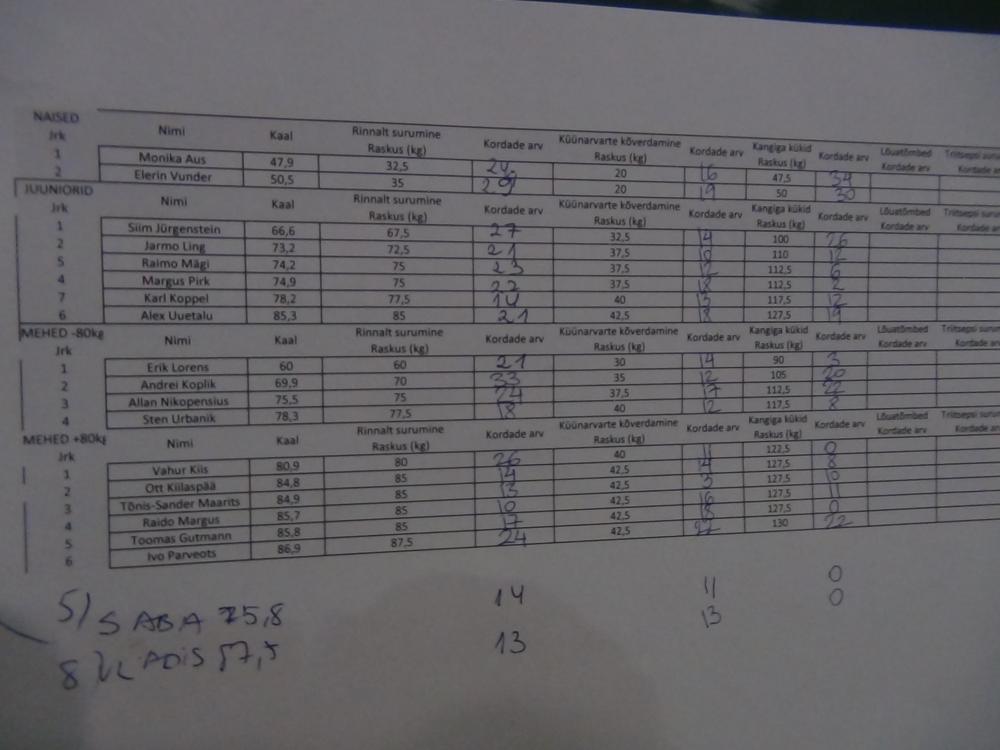 NAISED
Jrk Nimi Kaal Rinnalt surumine Raskus (kg) Kordade arv Küünarvarte kõverdamine Raskus (kg) Kordade arv Kangiga kükid Raskus (kg) Kordade arv Lõuatõmbed Kordade arv Triitsepsi
1 Monika Aus 47,9 32,5 20 16 47,5 34
2 Elerin Vunder 50,5 35 29 20 19 50 30
JUUNIORID
Jrk Nimi Kaal Rinnalt surumine Raskus (kg) Kordade arv Küünarvarte kõverdamine Raskus (kg) Kordade arv Kangiga kükid Raskus (kg) Kordade arv Lõuatõmbed Kordade arv Triitsepsi
1 Siim Jürgenstein 66,6 67,5 27 32,5 14 100 26
2 Jarmo Ling 73,2 72,5 21 37,5 10 110 12
5 Raimo Mägi 74,2 75 23 37,5 12 112,5 6
4 Margus Pirk 74,9 75 22 37,5 18 112,5 2
7 Karl Koppel 78,2 77,5 14 40 13 117,5 12
6 Alex Uuetalu 85,3 85 21 42,5 18 127,5 19
MEHED -80kg
Jrk Nimi Kaal Rinnalt surumine Raskus (kg) Kordade arv Küünarvarte kõverdamine Raskus (kg) Kordade arv Kangiga kükid Raskus (kg) Kordade arv Lõuatõmbed Kordade arv Triitsepsi
1 Erik Lorens 60 60 21 30 14 90 3
2 Andrei Koplik 69,9 70 33 35 12 105 20
3 Allan Nikopensius 75,5 75 24 37,5 17 112,5 22
4 Sten Urbanik 78,3 77,5 18 40 12 117,5 8
MEHED +80kg
Jrk Nimi Kaal Rinnalt surumine Raskus (kg) Kordade arv Küünarvarte kõverdamine Raskus (kg) Kordade arv Kangiga kükid Raskus (kg) Kordade arv Lõuatõmbed Kordade arv Triitsepsi
1 Vahur Kiis 80,9 80 26 40 11 122,5 0
2 Ott Kiilaspää 84,8 85 14 42,5 14 127,5 8
3 Tõnis-Sander Maarits 84,9 85 13 42,5 3 127,5 10
4 Raido Margus 85,7 85 10 42,5 16 127,5 11
5 Toomas Gutmann 85,8 85 17 42,5 18 127,5 0
6 Ivo Parveots 86,9 87,5 24 42,5 22 130 22
5) SABA 75,8 14 11 0
8 VLADIS 57,5 13 13 0